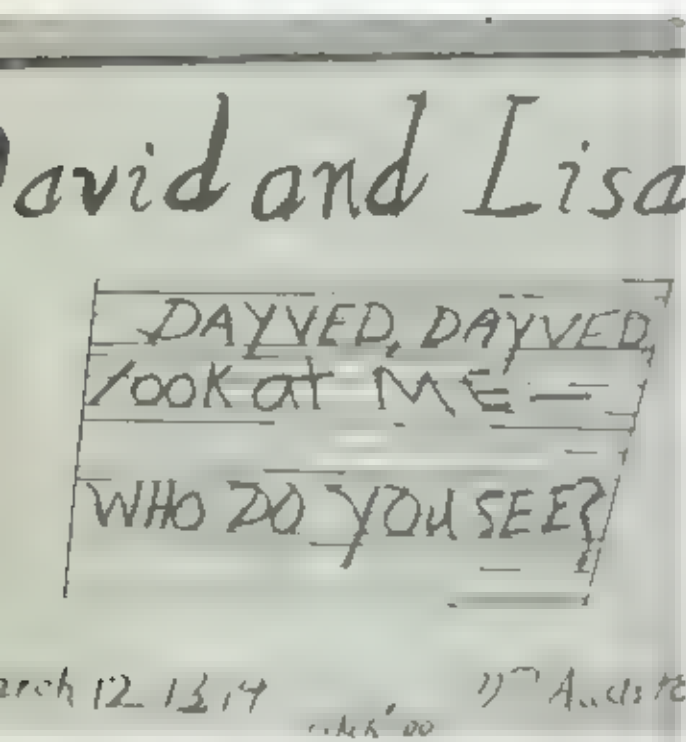 David and Lisa
DAYVED, DAYVED
look at ME —
WHO DO YOU SEE?
March 12 13 14